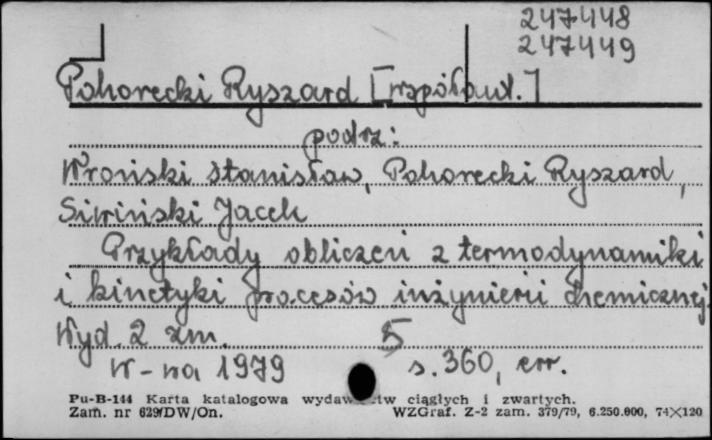 247448
247449
Pohorecki Ryszard [współaut.]
podrz:
Wroński Stanisław, Pohorecki Ryszard,
Siwiński Jacek
Przykłady obliczeń z termodynamiki
i kinetyki procesów inżynierii chemicznej.
Wyd. 2 zm. 5
W-wa 1979 s. 360, err.
Pu-B-144 Karta katalogowa wydaw tw ciągłych i zwartych.
Zam. nr 629/DW/On. WZGraf. Z-2 zam. 379/79, 6.250.000, 74×120